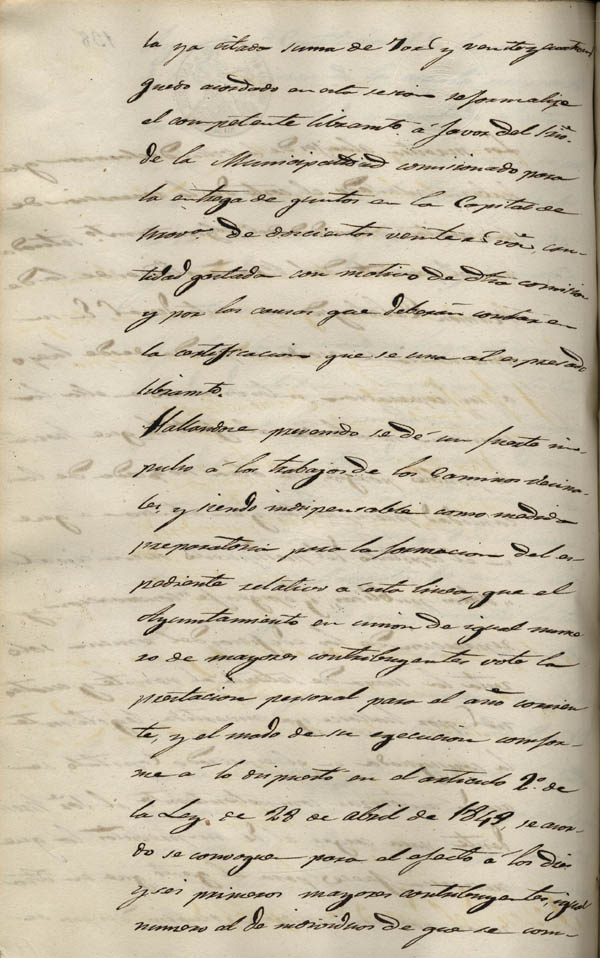 la ya citada suma de 7035 y veinte y cuatro
quedo acordado en esta sesion se formalize
el competente libramto. á favor del Sñ.
de la Municipalidad comisionado para
la entrega de quintos en la Capital de
Prova. de doscientos veinte rs. von., can-
tidad gastada con motivo de dha comision
y por las causas que deberán constar en
la certificacion que se una al espresado
libramto.
Hallandose prevenido se dé un fuerte im-
pulso á los trabajos de los Caminos vecina-
les, y siendo indispensable como medida
preparatoria para la formacion del es-
pediente relativo á esta linea, que el
Ayuntamiento en union de igual nume-
ro de mayores contribuyentes vote la
prestacion personal para el año corrien-
te, y el modo de su egecucion confor-
me á lo dispuesto en el articulo 2º. de
la Ley de 28 de abril de 1849, se acor-
do se convoquen para el efecto á los diez
y seis primeros mayores contribuyentes, igual
numero al de individuos de que se com-